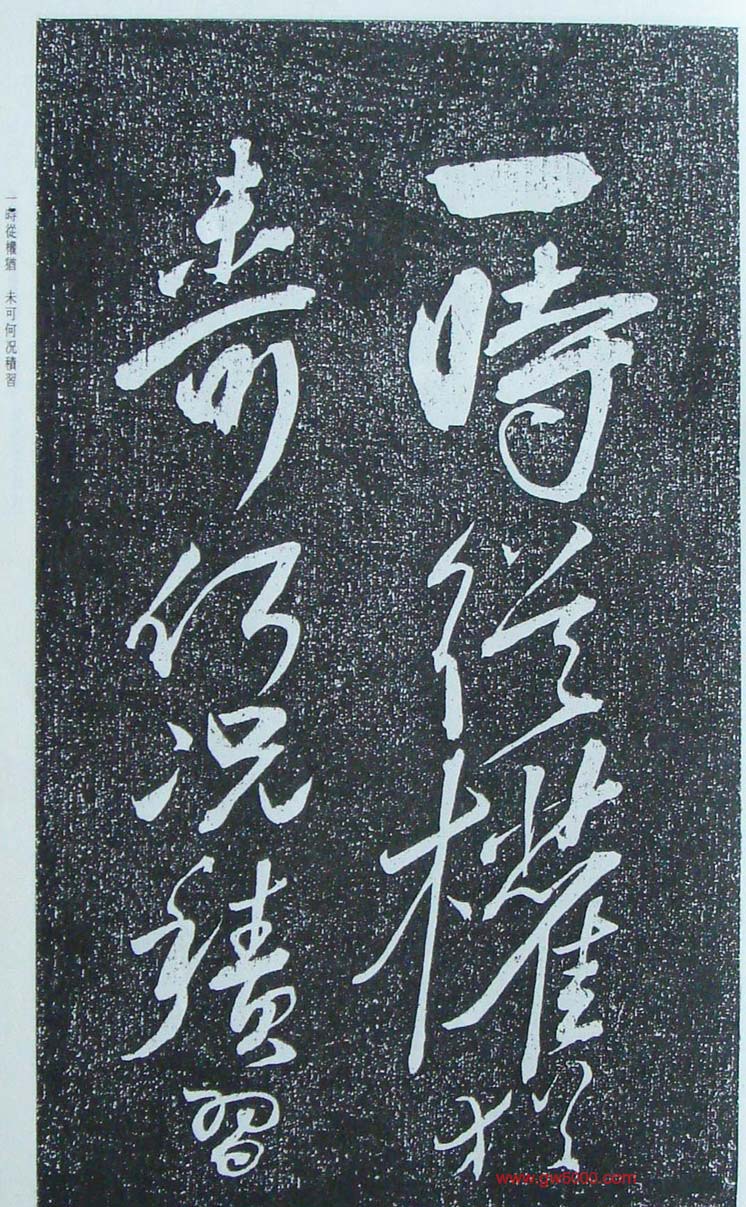 一時從權猶
未可何况積習
一時從權猶 未可何况積習
www.gw8000.com